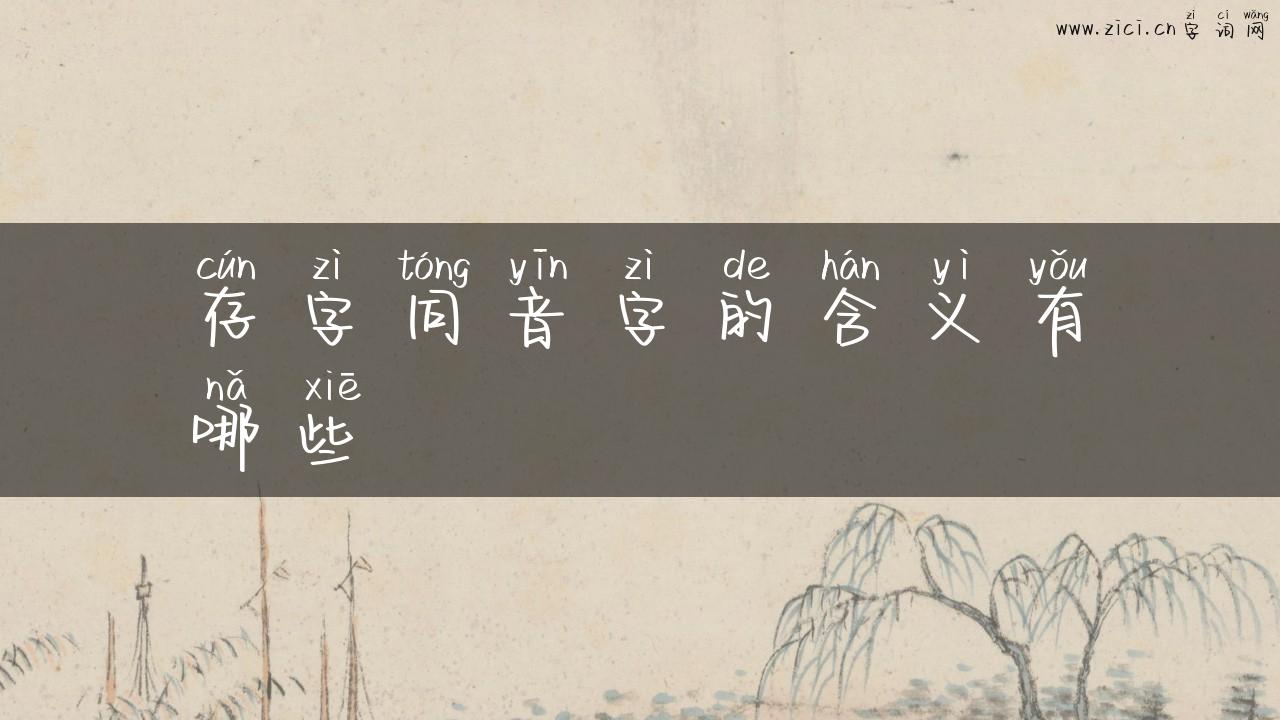 zì cí wǎng
www.zici.cn 字词网
cún zì tóng yīn zì de hán yì yǒu
存字同音字的含义有
nǎ xiē
哪些